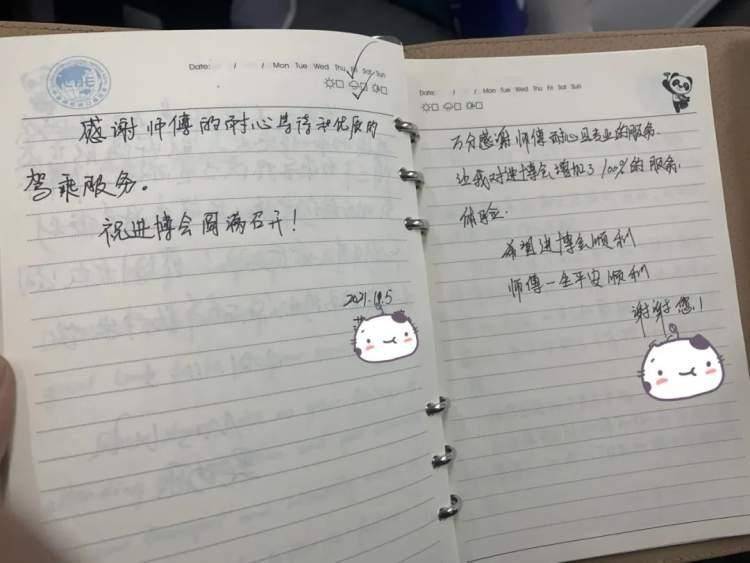 Date: / / Mon Tue Wed Thu Fri Sat Sun
感谢师傅的耐心等待和优质的
驾乘服务。
祝进博会圆满召开!
Date: / / Mon Tue Wed Thu Fri Sat Sun
万分感谢师傅耐心且专业的服务.
让我对进博会增加了100%的服务
体验.
希望进博会顺利
师傅一生平安顺利
谢谢您!